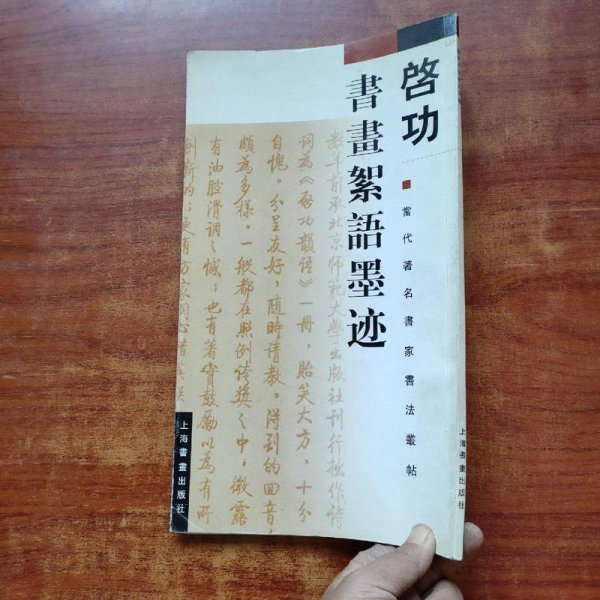 啓功
書畫絮語墨迹
當代著名書家書法叢帖
數年前承北京师範大學出版社刊行拙作诗
词為《啓功韻语》一冊，贻笑大方，十分
自愧。分呈友好，随時请教。得到的回音，
頗為多樣。一般都在照例倖奬之中，微露
有油腔滑调之憾；也有著實鼓勵以為有所
創新的；更有方家同心者
上海書畫出版社
上海書畫出版社